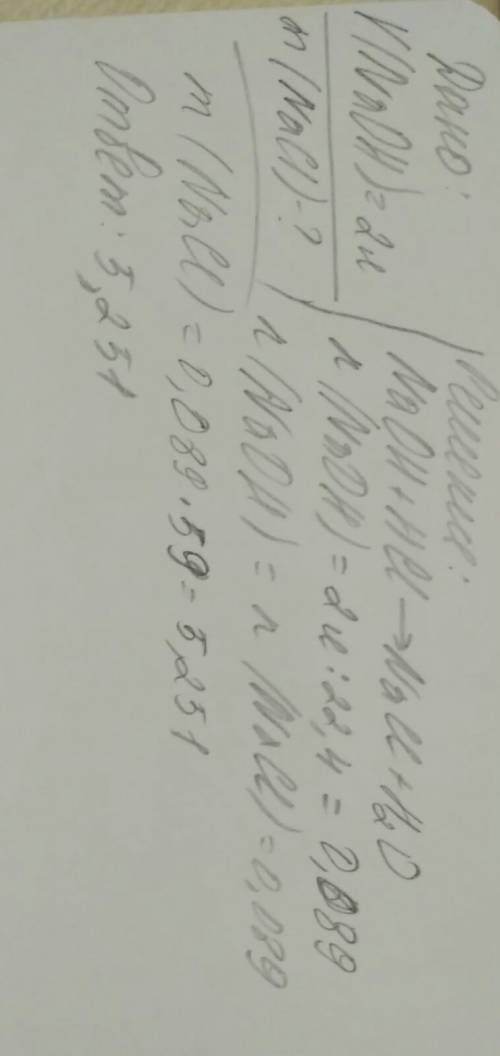 Дано:
V(NaOH)=2л
m(NaCl)-?
Решение:
NaOH+HCl→NaCl+H2O
n(NaOH)=2л:22,4=0,089
n(NaOH)=n(NaCl)=0,089
m(NaCl)=0,089·59=5,251
Ответ: 5,251